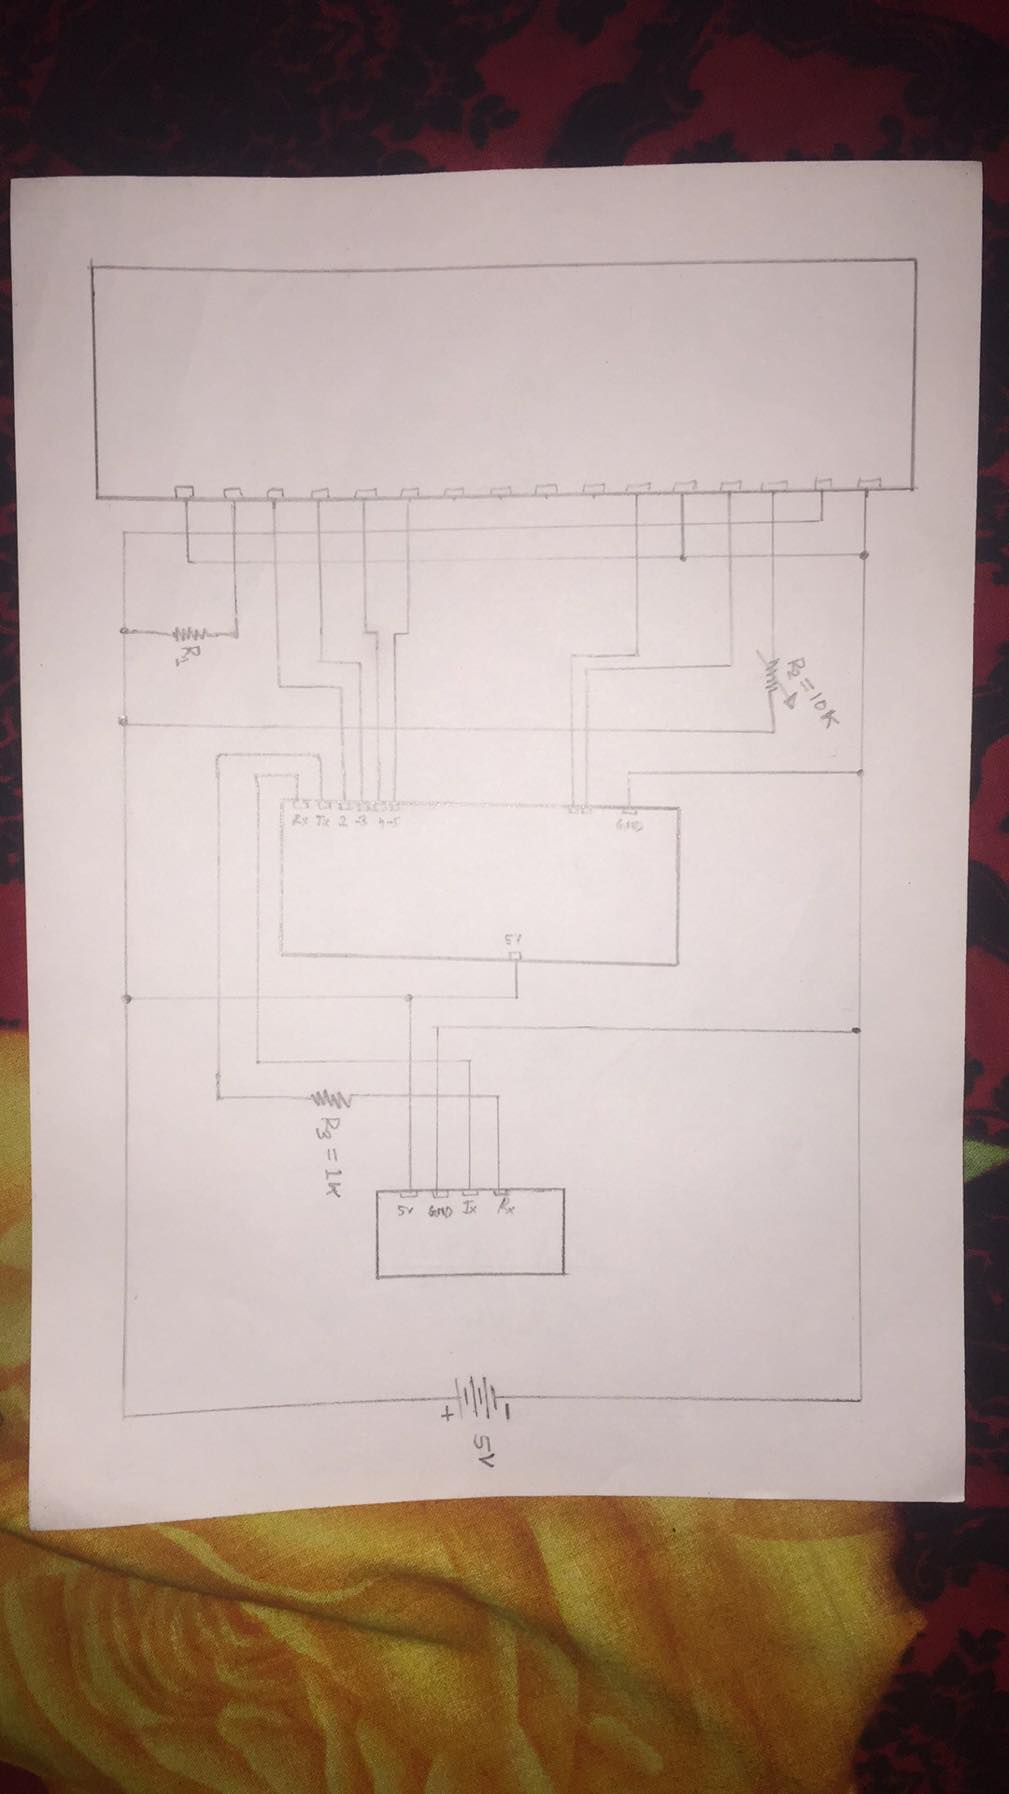 R1
R2 = 10K
Rx Tx 2 -3 4-5
GND
5V
R3 = 1K
5V GND Tx Rx
+ -
5V